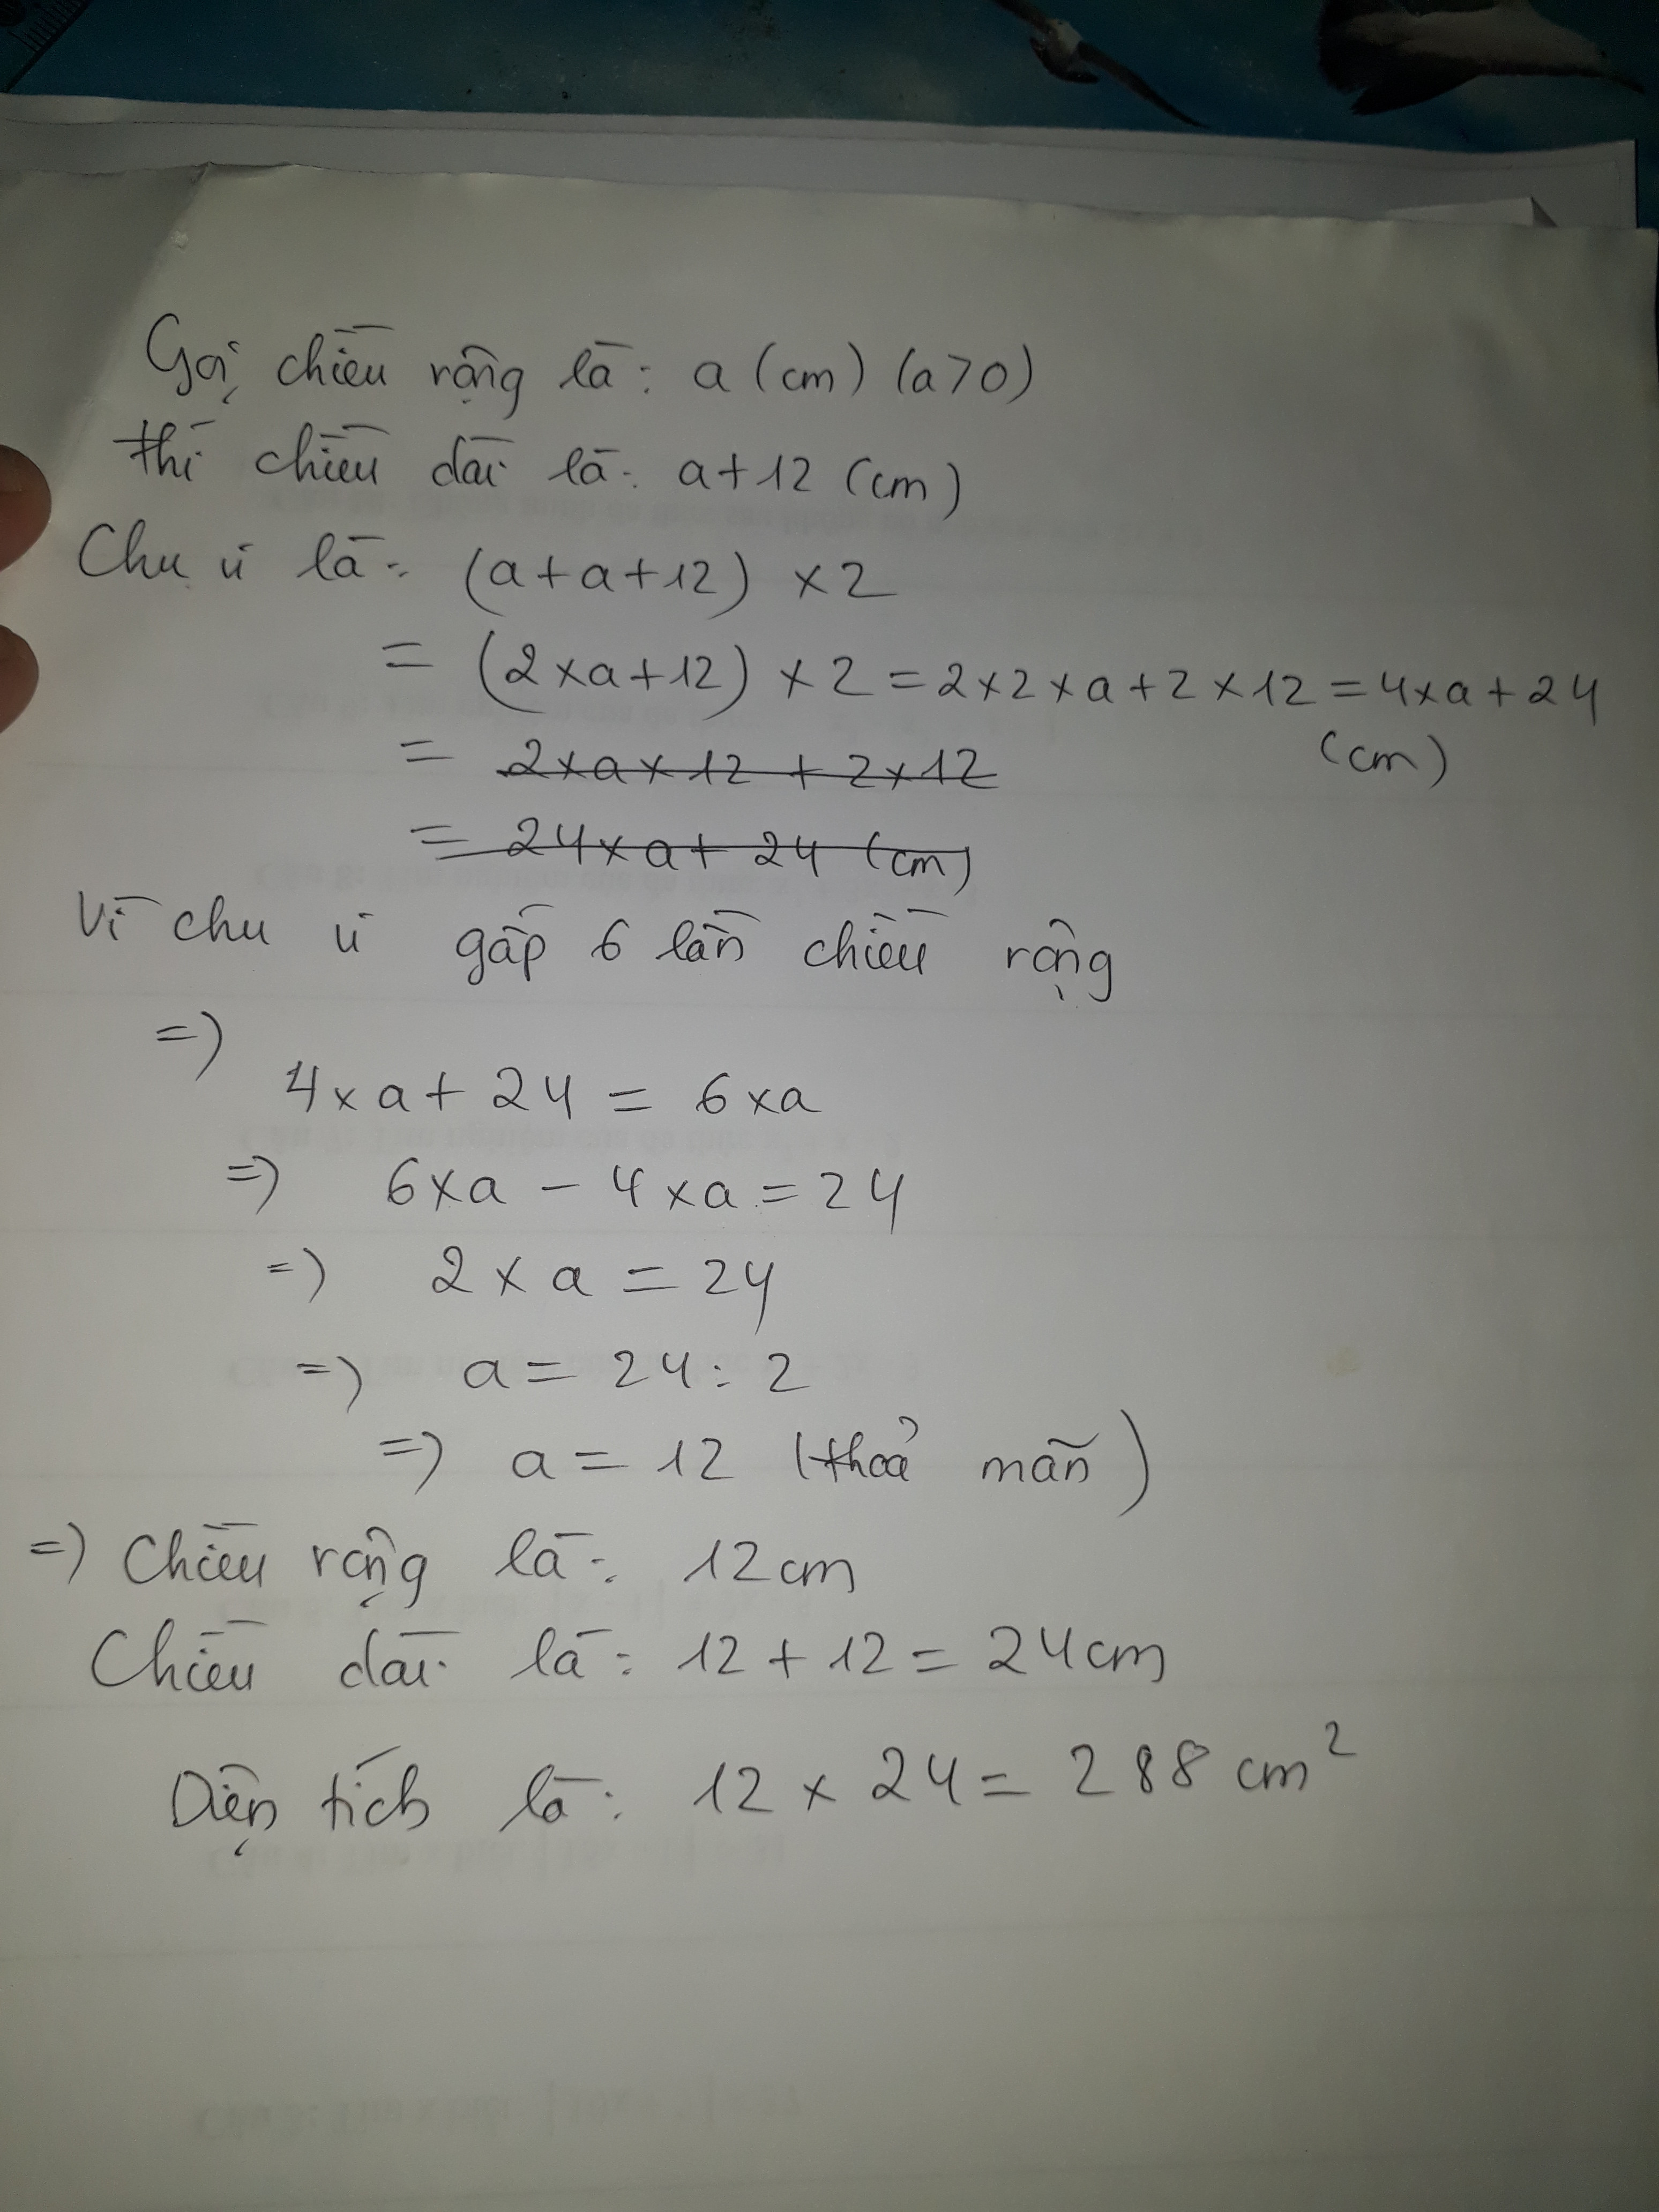 Gọi chiều rộng là: a (cm) (a>0)
thì chiều dài là: a+12 (cm)
Chu vi là: (a+a+12) ×2
= (2×a+12) ×2 = 2×2×a+2×12 = 4×a+24
(cm)
= 2×a×12 + 2×12
= 24×a+ 24 (cm)
Vì chu vi gấp 6 lần chiều rộng
=>
4×a+24 = 6×a
=> 6×a - 4×a = 24
=> 2×a = 24
=> a = 24:2
=> a = 12 (thoả mãn)
=> Chiều rộng là: 12cm
Chiều dài là: 12+12 = 24cm
Diện tích là: 12 × 24 = 288 cm²